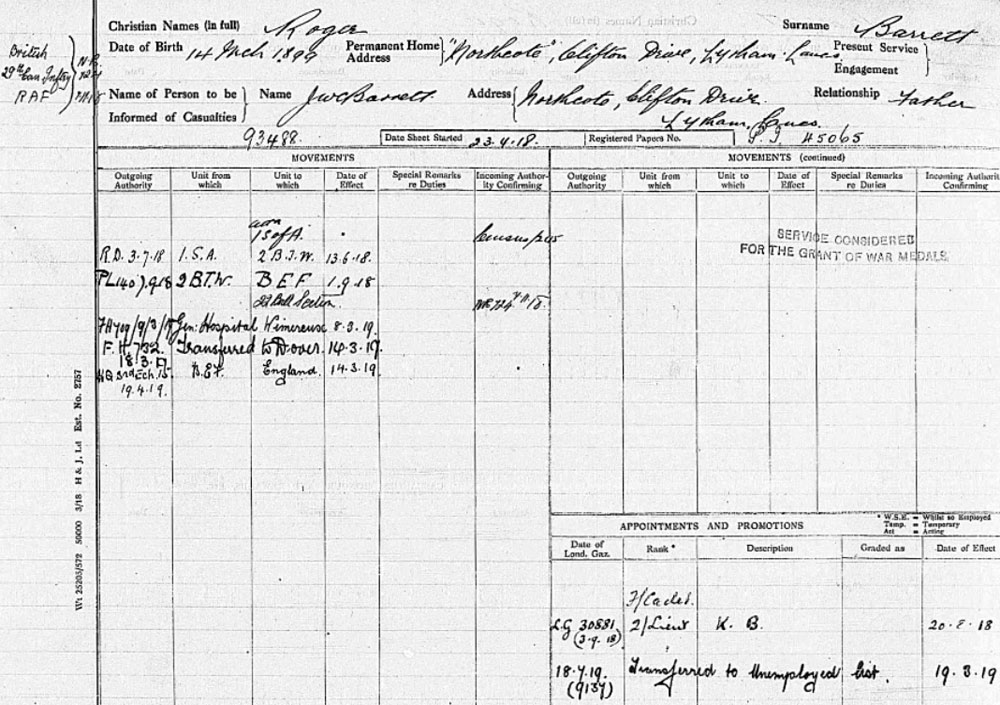 Christian Names (in full) Roger Surname Barrett
British Date of Birth 14 Mch 1899 Permanent Home Address "Northcote", Clifton Drive, Lytham. Lancs. Present Service Engagement
29th Can. Inftry
RAF
Name of Person to be Informed of Casualties Name J W C Barrett. Address Northcote, Clifton Drive. Relationship Father
Lytham, Lancs.
93488. Date Sheet Started 23.4.18. Registered Papers No. 45065
MOVEMENTS MOVEMENTS (continued)
Outgoing Authority Unit from which Unit to which Date of Effect Special Remarks re Duties Incoming Authority Confirming Outgoing Authority Unit from which Unit to which Date of Effect Special Remarks re Duties Incoming Authority Confirming
1 S of A. Census
SERVICE CONSIDERED
FOR THE GRANT OF WAR MEDALS
R.D. 3.7.18 1.S.A. 13.6.18.
B E F 1.9.18
Gen: Hospital Wimereux 8.3.19.
F.H. 732. Transferred to Dover. 14.3.19.
18.3.19
B.E.F. England. 14.3.19.
19.4.19.
Wt 25203/572 50000 3/18 H & J. Ld Est. No. 2757
APPOINTMENTS AND PROMOTIONS
* W.S.E. = Whilst so Employed
Temp. = Temporary
Act = Acting
Date of Lond. Gaz. Rank * Description Graded as Date of Effect
F/Cadet.
L.G 30881 2/Lieut K. B. 20.8.18
(3.9.18)
18.7.19. Transferred to Unemployed List. 19.3.19
(9137)